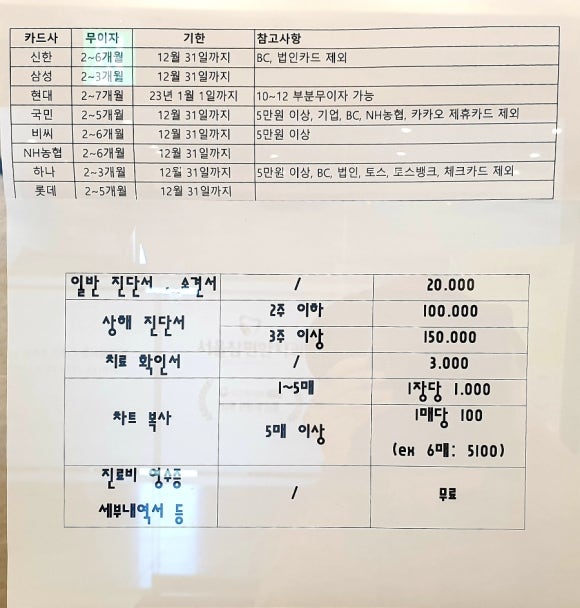 카드사 무이자 기한 참고사항
신한 2~6개월 12월 31일까지 BC, 법인카드 제외
삼성 2~3개월 12월 31일까지
현대 2~7개월 23년 1월 1일까지 10~12 부분무이자 가능
국민 2~5개월 12월 31일까지 5만원 이상, 기업, BC, NH농협, 카카오 제휴카드 제외
비씨 2~6개월 12월 31일까지 5만원 이상
NH농협 2~6개월 12월 31일까지
하나 2~3개월 12월 31일까지 5만원 이상, BC, 법인, 토스, 토스뱅크, 체크카드 제외
롯데 2~5개월 12월 31일까지
일반 진단서 . 소견서 / 20.000
상해 진단서 2주 이하 100.000
3주 이상 150.000
치료 확인서 / 3.000
차트 복사 1~5매 1장당 1.000
5매 이상 1매당 100
(ex 6매: 5100)
진료비 영수증
세부내역서 등 / 무료